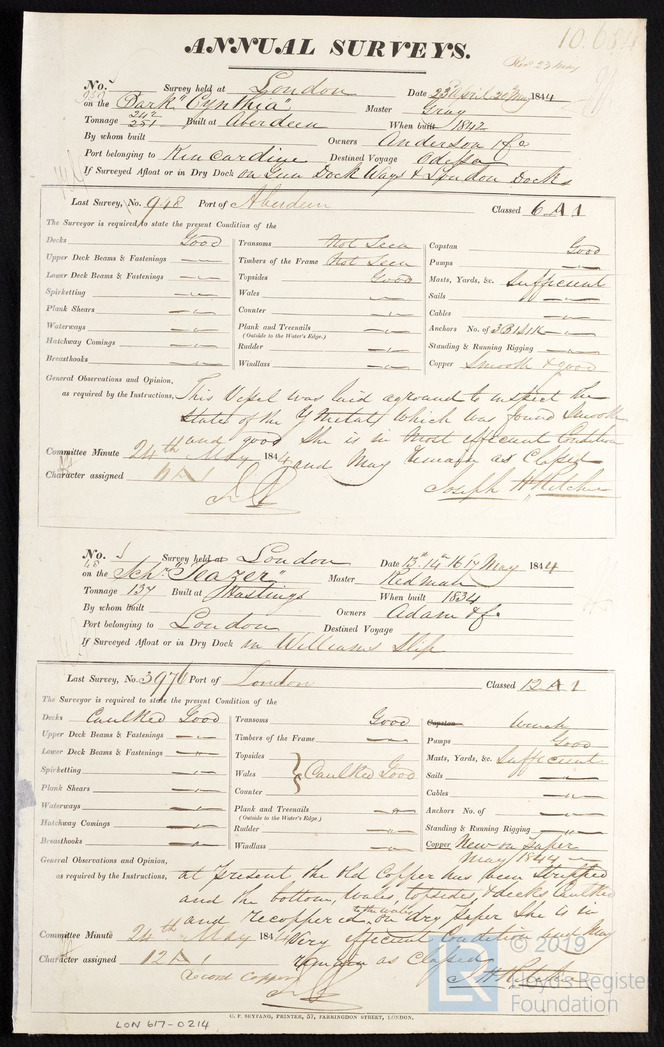 ANNUAL SURVEYS.
10.684
Rec 23 May
No. Survey held at London Date 23 April 20 May 1844
on the Bark "Cynthia" Master Gray
Tonnage 242 251 Built at Aberdeen When built 1842
By whom built Owners Anderson & Co
Port belonging to Kincardine Destined Voyage Odessa
If Surveyed Afloat or in Dry Dock on Gun Dock Ways & London Docks
Last Survey, No. 948 Port of Aberdeen Classed 6 A 1
The Surveyor is required to state the present Condition of the
Decks Good
Upper Deck Beams & Fastenings "
Lower Deck Beams & Fastenings "
Spirketting "
Plank Shears "
Waterways "
Hatchway Comings "
Breasthooks "
Transoms Not Seen
Timbers of the Frame Not Seen
Topsides Good
Wales "
Counter "
Plank and Treenails "
(Outside to the Water's Edge.)
Rudder "
Windlass "
Capstan Good
Pumps "
Masts, Yards, &c. Sufficient
Sails "
Cables "
Anchors No. of 3B 1S 1K "
Standing & Running Rigging "
Copper Smooth & good
General Observations and Opinion,
as required by the Instructions, This Vessel was laid aground to inspect the
state of the Y Metal, which was found Smooth
and good She is in most efficient Condition
and May remain as Classed
Joseph H Ritchie
Committee Minute 24th May 1844
Character assigned 6 A 1
No. Survey held at London Date 13th 14th 16 17 May 1844
on the Schr "Teazer" Master Redman
Tonnage 137 Built at Hastings When built 1834
By whom built Owners Adam & Co
Port belonging to London Destined Voyage
If Surveyed Afloat or in Dry Dock on Williams Slip
Last Survey, No. 3976 Port of London Classed 12 A 1
The Surveyor is required to state the present Condition of the
Decks Caulked Good
Upper Deck Beams & Fastenings "
Lower Deck Beams & Fastenings "
Spirketting "
Plank Shears "
Waterways "
Hatchway Comings "
Breasthooks "
Transoms Good
Timbers of the Frame "
Topsides
Wales Caulked Good
Counter
Plank and Treenails "
(Outside to the Water's Edge.)
Rudder "
Windlass "
Capstan Winch
Pumps Good
Masts, Yards, &c. Sufficient
Sails "
Cables "
Anchors No. of "
Standing & Running Rigging "
Copper New on paper
May 1844
General Observations and Opinion,
as required by the Instructions, at present the Old Copper has been Stripped
and the bottom, Wales, topsides, & decks Caulked
and recoppered on dry paper She is in
Very efficient Condition and May
remain as Classed
J H Ritchie
Committee Minute 24th May 1844
Character assigned 12 A 1
Record Copper
G. F. SEYFANG, PRINTER, 57, FARRINGDON STREET, LONDON.
LON 617-0214
LR © 2019
Lloyd's Register
Foundation